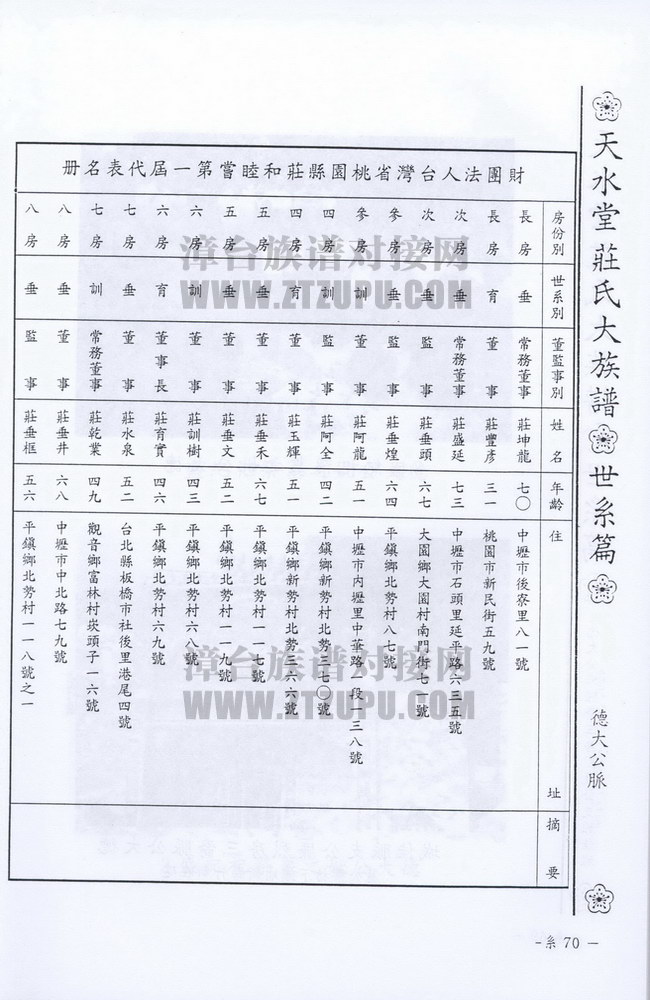 天水堂 莊氏大族譜 世系篇
德大公脈
-系 70 -
財團法人台灣省桃園縣莊和睦嘗第一屆代表名册
房份別 世系別 董監事別 姓名 年齡 住址 摘要
長房 垂 常務董事 莊坤龍 七〇 中壢市後寮里八一號
長房 育 董事 莊豐彥 三一 桃園市新民街五九號
次房 垂 常務董事 莊盛延 七三 中壢市石頭里延平路六三五號
次房 垂 監事 莊垂頭 六七 大園鄉大園村南門街七一號
參房 垂 監事 莊垂煌 六四 平鎮鄉北勢村八七號
參房 訓 董事 莊阿龍 五一 中壢市內壢里中華路一段一三八號
四房 訓 監事 莊阿全 四二 平鎮鄉新勢村北勢三七〇號
四房 育 董事 莊玉輝 五一 平鎮鄉新勢村北勢三六六號
五房 垂 董事 莊垂禾 六七 平鎮鄉北勢村一一七號
五房 垂 董事 莊垂文 五二 平鎮鄉北勢村一一九號
六房 訓 董事 莊訓樹 四三 平鎮鄉北勢村六八號
六房 育 董事長 莊育實 四六 平鎮鄉北勢村六九號
七房 垂 董事 莊水泉 五二 台北縣板橋市社後里港尾四號
七房 訓 常務董事 莊乾業 四九 觀音鄉富林村崁頭子一六號
八房 垂 董事 莊垂井 六八 中壢市中北路七九號
八房 垂 監事 莊垂框 五六 平鎮鄉北勢村一一八號之一
漳台族谱对接网
WWW.ZTZUPU.COM
漳台族谱对接网
WWW.ZTZUPU.COM